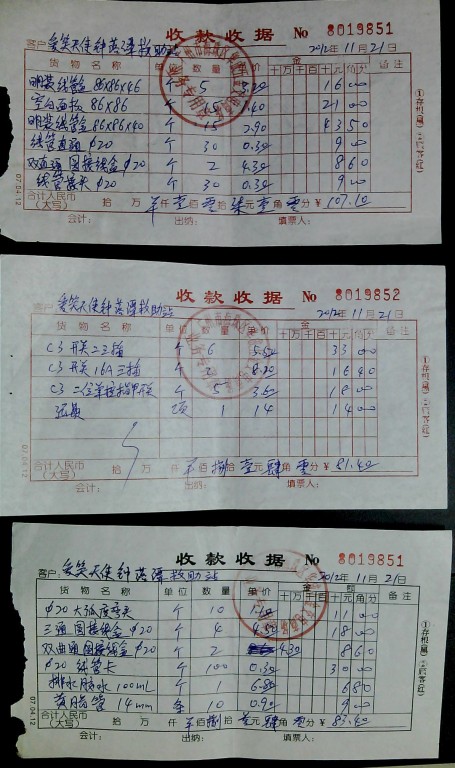 收款收据 No 8019851
客户: 爱笑天使钟落潭救助站 2012年11月21日
货物名称 单位 数量 单价 金 备注
十 万 千 百 十 元 角 分
明装线管盒86x86x46 个 5 3.20 16 00
空白面板 86x86 个 15 1.40 21 00
明装线管盒86x86x40 个 15 2.90 43 50
线管直通 φ20 个 30 0.30 9 00
双直通圆接线盒 φ20 个 2 4.30 8 60
线管弯头 φ20 个 30 0.30 9 00
合计人民币(大写) 拾 万 仟 壹佰 零拾 柒元 壹角 零分 ¥107.10
会计: 出纳: 填票人:
07.04.12
收款收据 No 8019852
客户: 爱笑天使钟落潭救助站 2012年11月21日
货物名称 单位 数量 单价 金 备注
十 万 千 百 十 元 角 分
C3开关二三插 个 6 5.50 33 00
C3开关16A三插 个 2 8.20 16 40
C3二位单控指甲开关 个 5 3.60 18 00
项 1 14 14 00
合计人民币(大写) 拾 万 仟 佰 捌拾 壹元 肆角 零分 ¥81.40
会计: 出纳: 填票人:
07.04.12
收款收据 No 8019851
客户: 爱笑天使钟落潭救助站 2012年11月21日
货物名称 单位 数量 单价 金额 备注
十 万 千 百 十 元 角 分
φ20大弧度弯头 个 10 1.10 11 00
三通圆接线盒 φ20 个 4 4.50 18 00
双曲通圆接线盒 φ20 个 2 4.30 8 60
φ20 线管卡 个 100 0.30 30 00
排水胶水 100mL 个 1 6.80 6 80
黄腊管 14mm 条 10 0.90 9 00
合计人民币(大写) 拾 万 仟 佰 捌拾 叁元 肆角 零分 ¥83.40
会计: 出纳: 填票人:
07.04.12